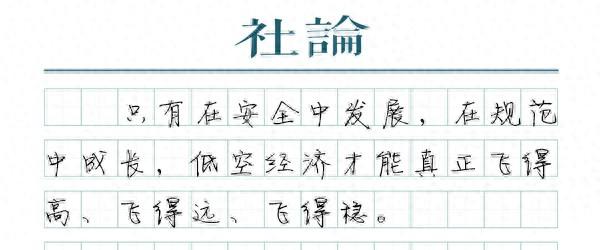 社論
只有在安全中发展，在规范
中成长，低空经济才能真正飞得
高、飞得远、飞得稳。